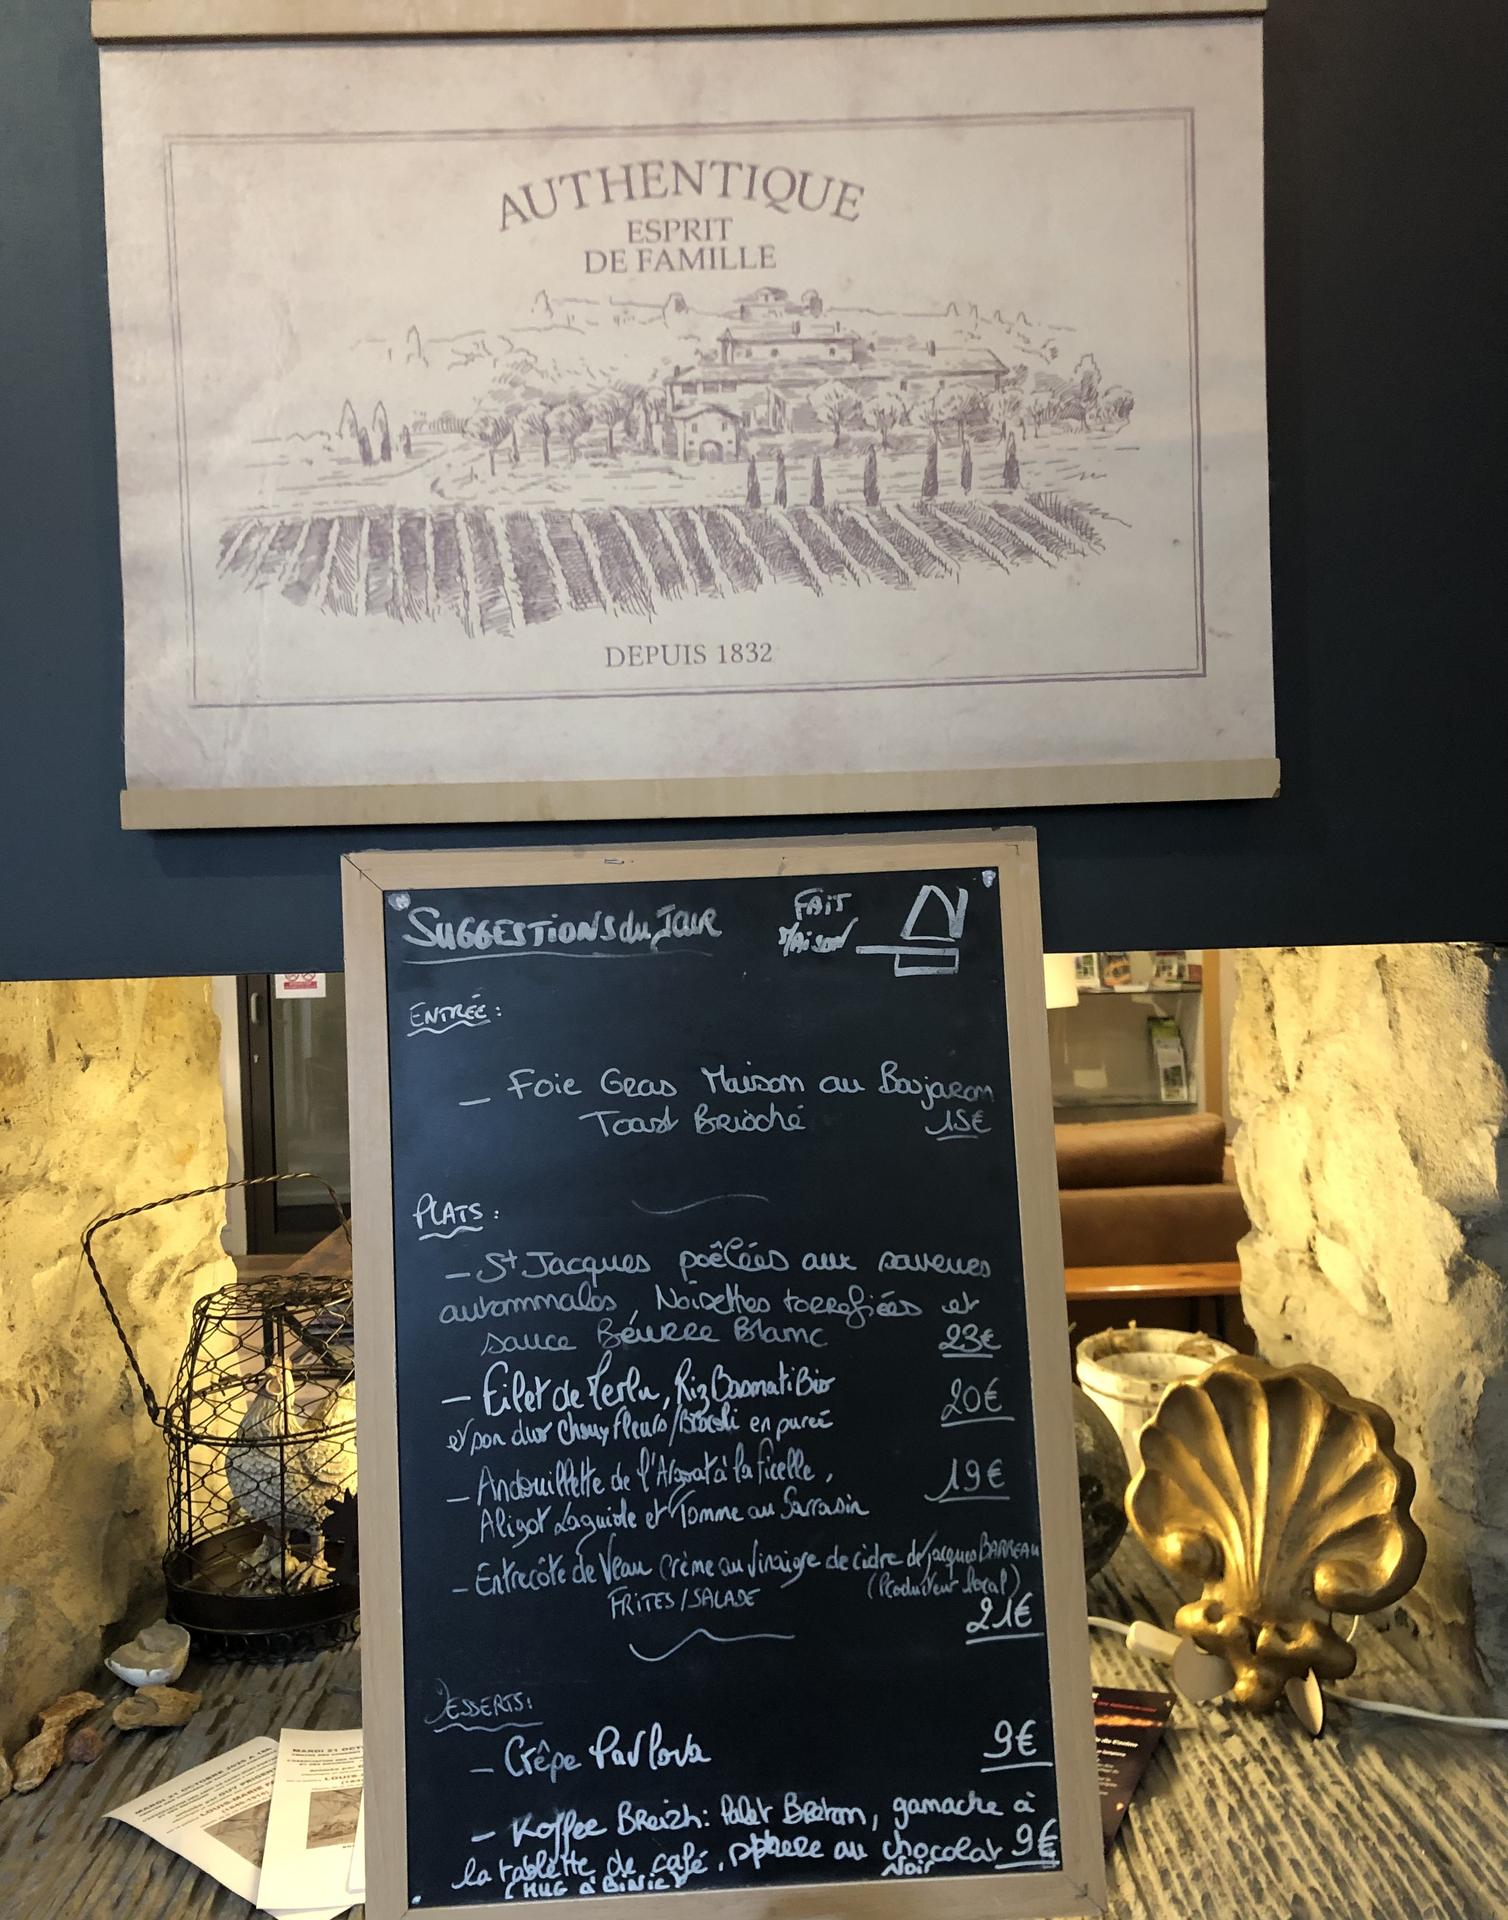 AUTHENTIQUE
ESPRIT
DE FAMILLE
DEPUIS 1832
SUGGESTIONS du JOUR
FAIT
MAISON
ENTRÉE :
_ Foie Gras Maison au Bosjaron
Toast Brioché 15€
PLATS :
_ St Jacques poêlées aux saveurs
automnales, Noisettes torrefiées et
sauce Béurre Blanc 23€
_ Filet de Merlu, Riz Basmati Bio 20€
et son duo Chou fleurs/Brocoli en purée
_ Andouillette de l'Argoat à la ficelle, 19€
Aligot Laguiole et Tomme au Sarrasin
_ Entrecôte de Veau crème au vinaigre de cidre de Jacques BARREAU
(Producteur local)
FRITES/SALADE
21€
DESSERTS:
_ Crêpe Pavlova 9€
_ Koffee Breizh: Palet Breton, ganache à
la tablette de café, sphere au chocolat 9€
Noir
(HUG à BINIC)
MARDI 21 OCTOBRE 2025 A 18H
MARDI 21 OCT